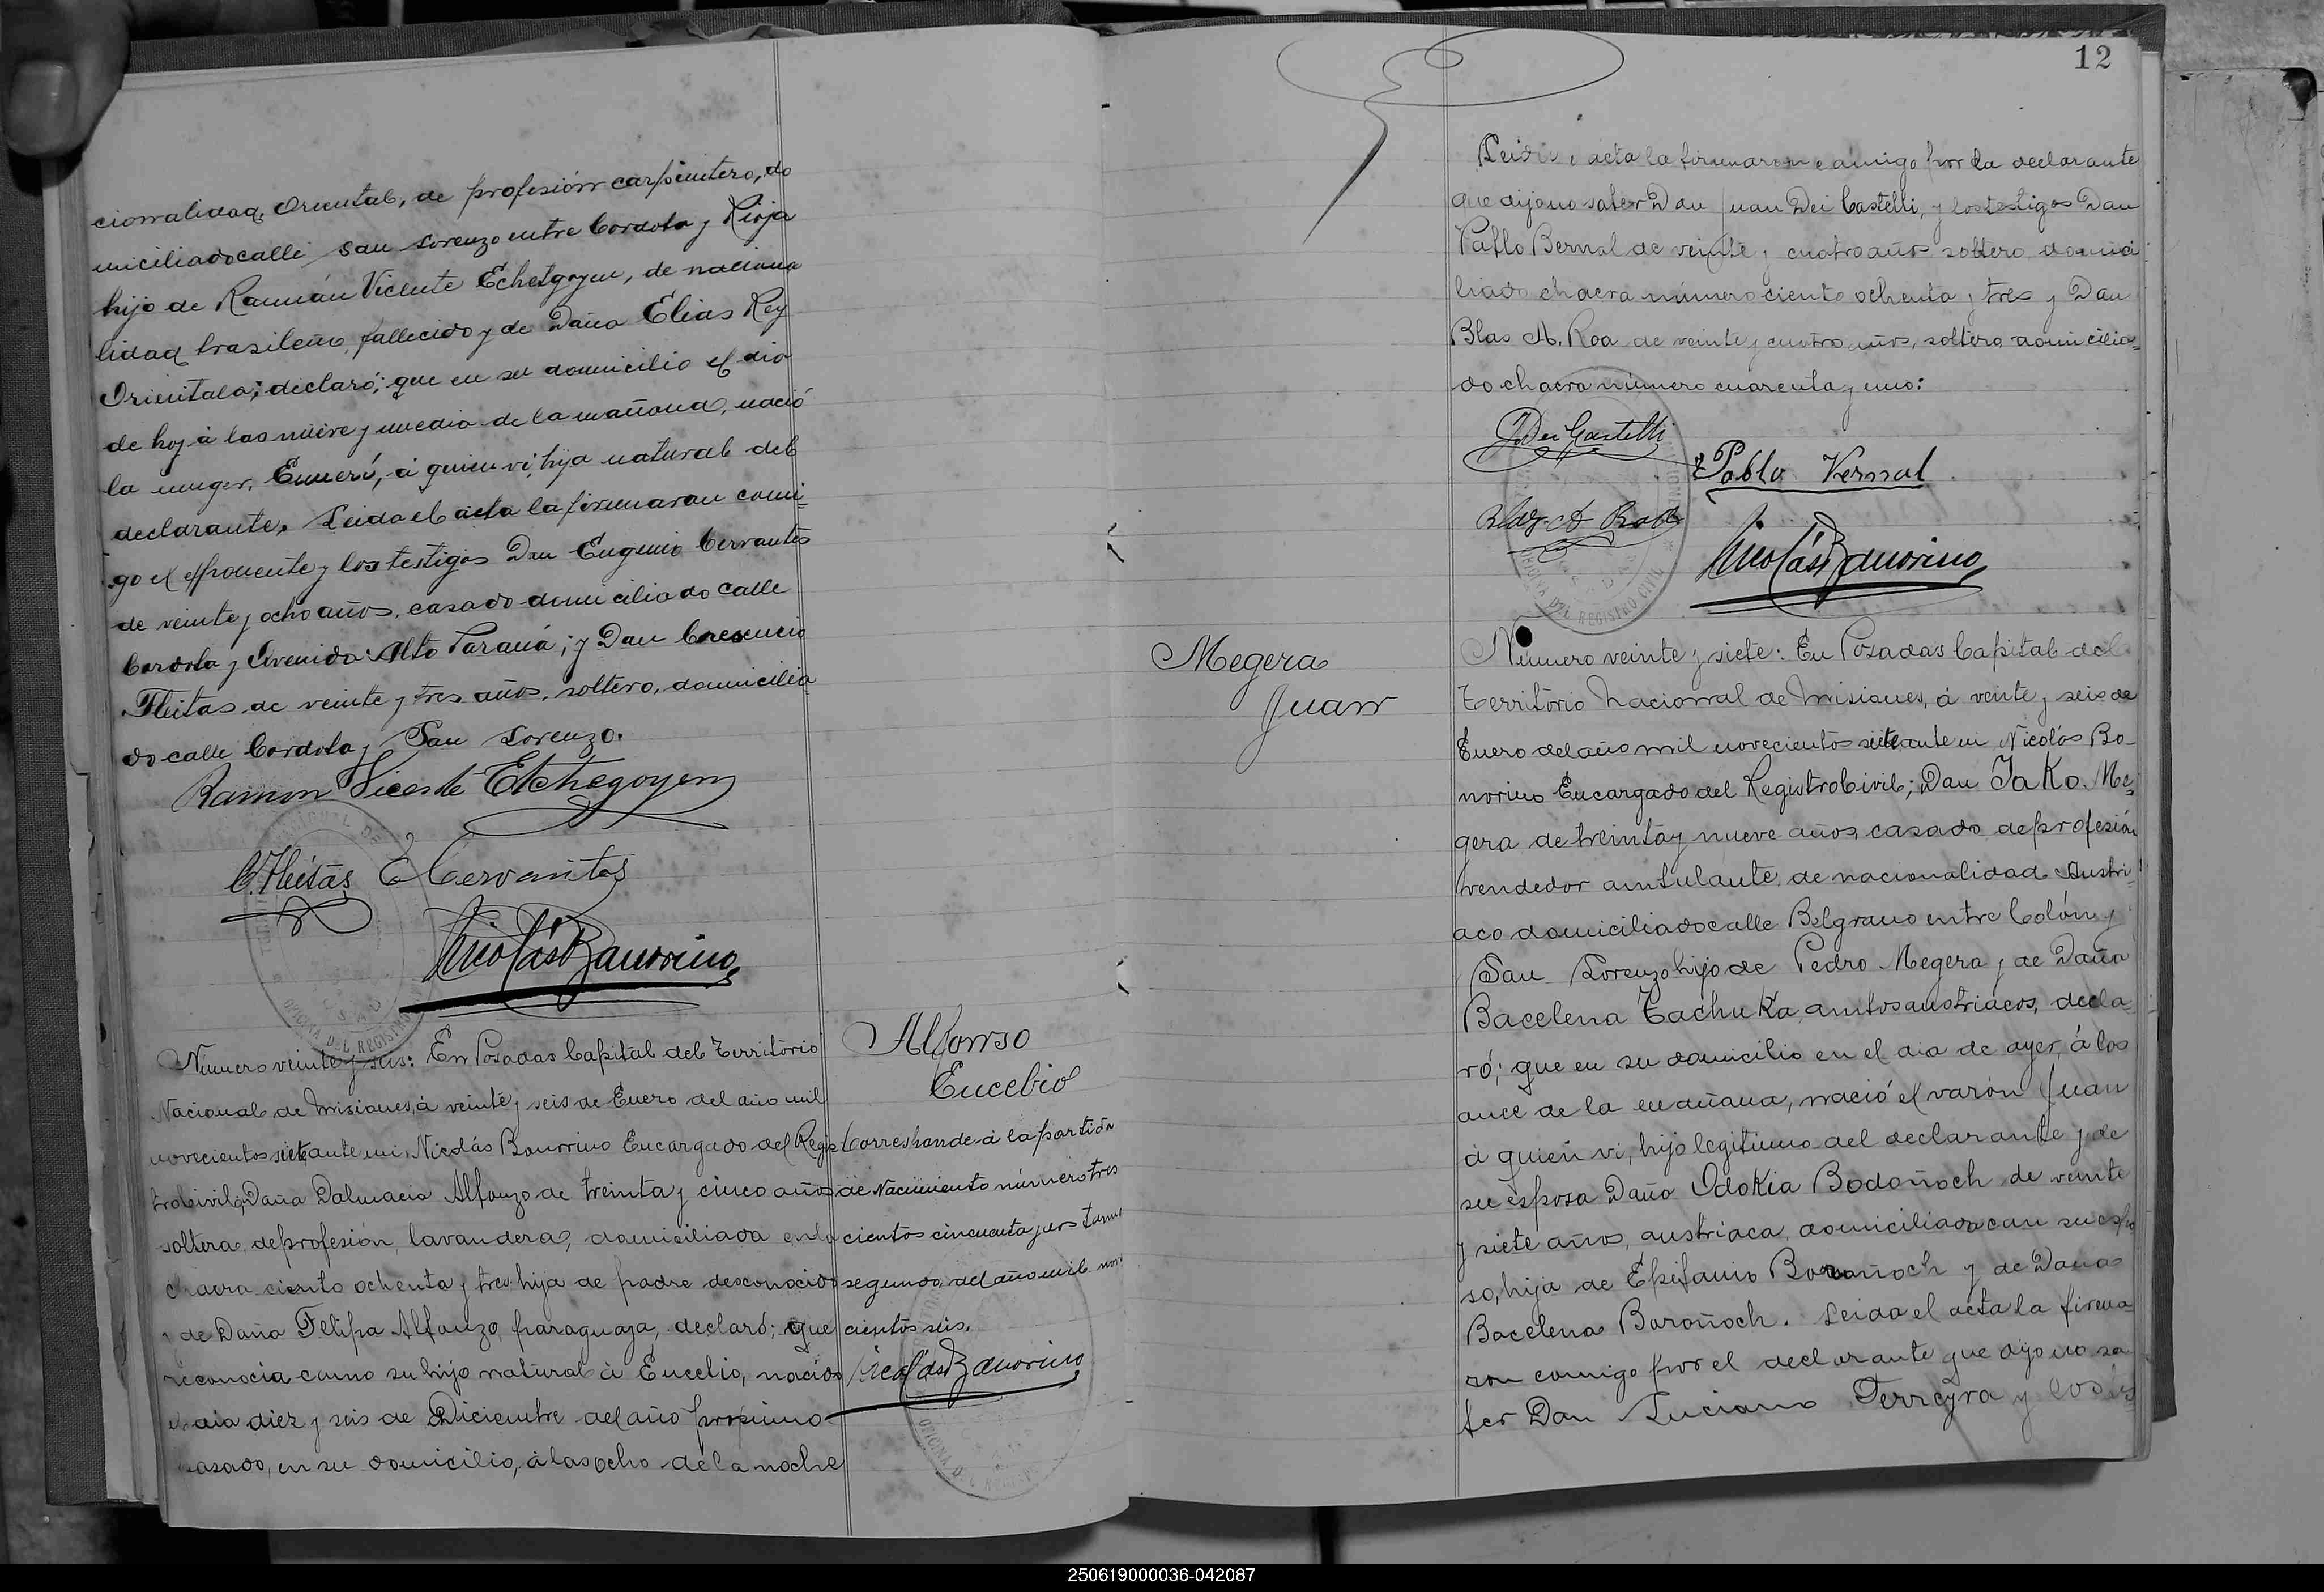 cionalidad, Oriental, de profesión carpintero, do
miciliado calle San Lorenzo entre Cordoba y Rioja
hijo de Ramón Vicente Echetgoyen, de naciona
lidad brasileño, fallecido y de Daña Elias Rey
Orientala; declaró; que en su domicilio el dia
de hoy á las nueve y media de la mañana, nació
la muger, á quien vi, hija natural del
declarante. Leida el acta la firmaron comi
go el esponente y los testigos Don Eugenio Cervantes
de veinte y ocho años, casado domiciliado calle
Cordoba y Avenida Alto Paraná; y Don Cresencio
Fleitas de veinte y tres años, soltero, domicilia
do calle Cordoba y San Lorenzo.
Ramon Vicente Etchegoyen
C. Fleitas E Cervantes
Nicolás Bonorino
OFICINA DEL REGISTRO
Número veinte y seis: En Posadas Capital del Territorio
Nacional de Misiones, á veinte y seis de Enero del año mil
novecientos siete ante mi, Nicolás Bonorino Encargado del Regis
tro Civil; Daña Dalmacia Alfonzo de treinta y cinco años
soltera, de profesión lavandera, domiciliada en la
chacra ciento ochenta y tres hija de padre desconocido
y de Daña Felipa Alfonzo, paraguaya, declaró; que
reconocia como su hijo natural á Eucebio, nacido
el dia diez y seis de Diciembre del año proximo
pasado, en su domicilio, á las ocho de la noche
Alfonso
Eucebio
Corresponde á la partida
de Nacimiento número tres
cientos cincuenta y uno tomo
segundo, del año mil nove
cientos seis.
Nicolás Bonorino
OFICINA DEL REGISTRO
12
Leida el acta la firmaron comigo por la declarante
que dijo no saber Don Juan Dei Castelli, y los testigos Don
Pablo Bernal de veinte y cuatro años soltero domici
liado chacra número ciento ochenta y tres y Don
Blas A. Roa de veinte y cuatro años, soltero domicilia
do chacra número cuarenta y uno:
J Dei Castelli
Pablo Vernal
Blas A Roa
Nicolás Bonorino
OFICINA DEL REGISTRO CIVIL
Megera
Juan
Número veinte y siete: En Posadas Capital del
Territorio Nacional de Misiones, á veinte y seis de
Enero del año mil novecientos siete ante mi Nicolás Bo
norino Encargado del Registro Civil; Don Jako Me
gera de treinta y nueve años, casado de profesión
vendedor ambulante, de nacionalidad Austri
aco domiciliado calle Belgrano entre Colón y
San Lorenzo hijo de Pedro Megera y de Daña
Bacelena Tachuka, ambos austriacos, decla
ró; que en su domicilio en el dia de ayer, á las
once de la mañana, nació el varón Juan
á quien vi, hijo legitimo del declarante y de
su esposa Daña Odokia Bodoñoch de veinte
y siete años, austriaca, domiciliada con su espo
so, hija de Epifanio Boroñoch y de Daña
Bacelena Boroñoch. Leida el acta la firma
ron comigo por el declarante que dijo no sa
ber Don Luciano Ferreyra y los
250619000036-042087